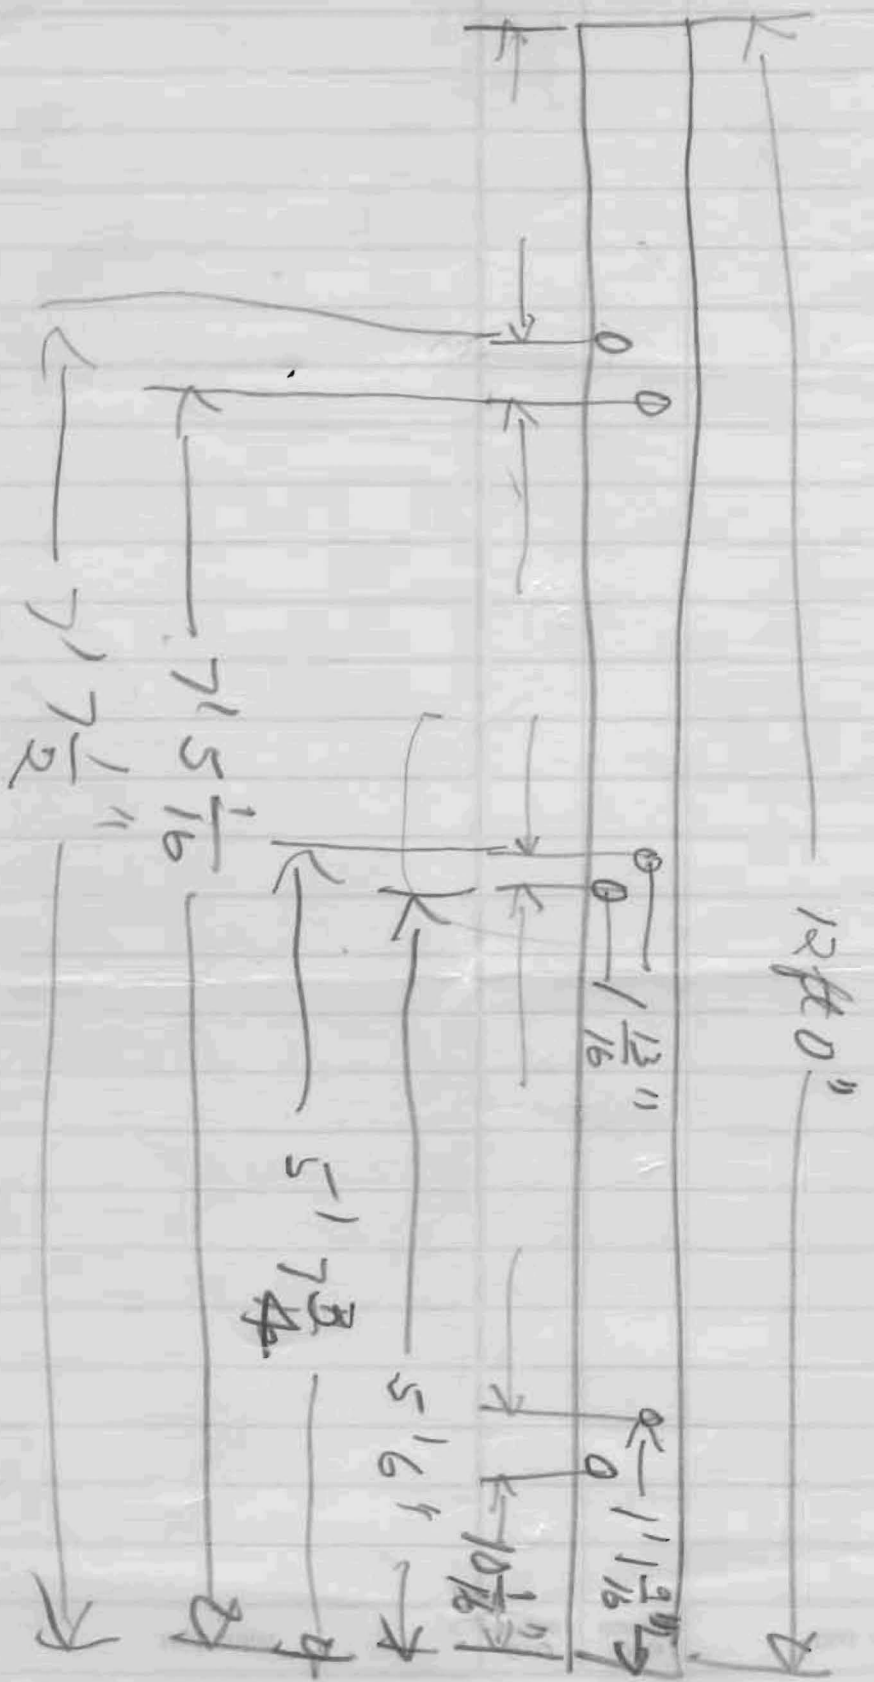 12 ft 0"
1 13/16"
1' 1 9/16"
10 1/16"
5' 6"
5' 7 3/4
7' 5 1/16
7' 7 1/2"